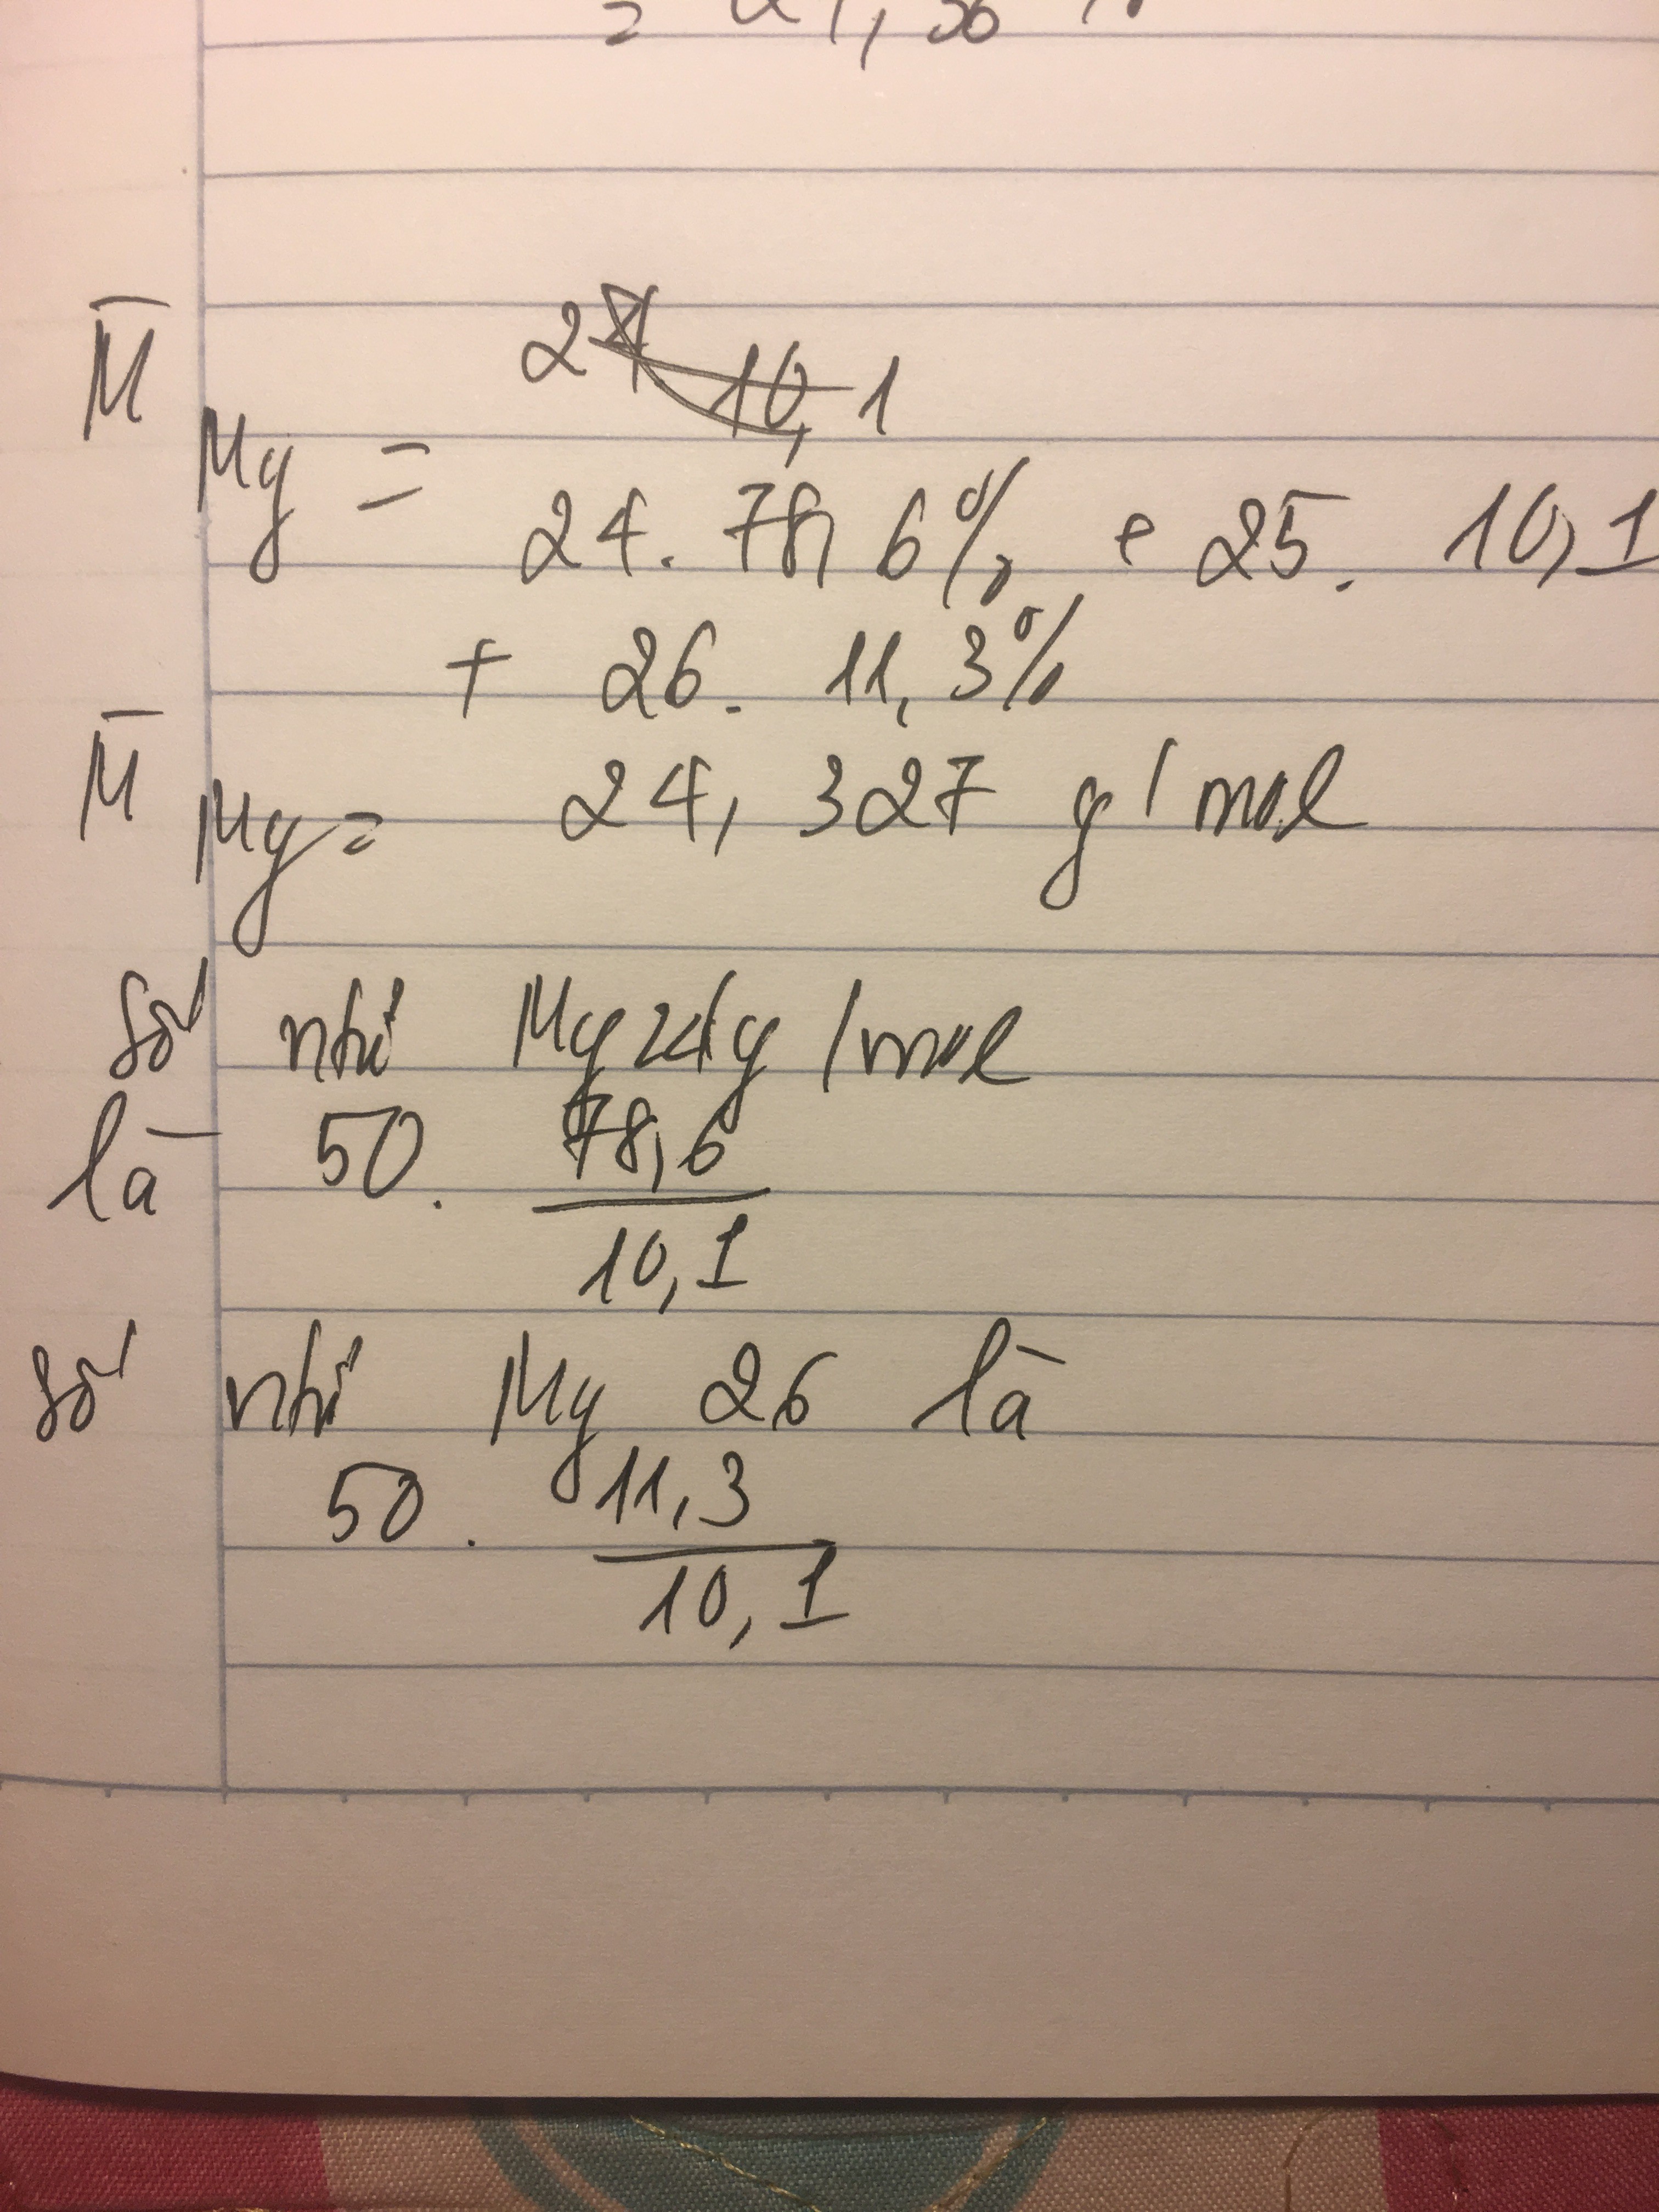 = 27, 36 %
M̄ Mg = 24. 78, 6% + 25. 10, 1
+ 26. 11, 3%
M̄ Mg = 24, 327 g/mol
số nhử Mg 24 g/mol
là 50. 78,6 / 10, 1
số nhử Mg 26 là
50. 11, 3 / 10, 1